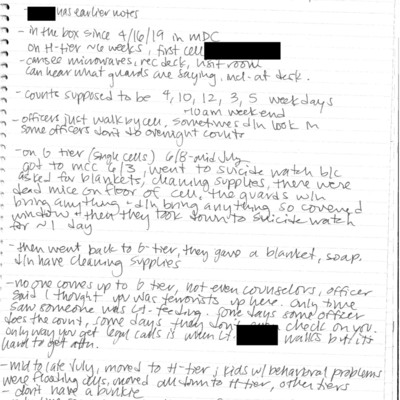 - has earlier notes
- in the box since 4/16/19 in MDC
on H-tier ~6 weeks, first cell
- can see microwaves, rec deck, visit room
can hear what guards are saying, incl. at desk.
- counts supposed to be 4, 10, 12, 3, 5 weekdays
~10am weekend
- officers just walk by cell, sometimes d/n look in
some officers don't do overnight counts
- on G tier (single cells) 6/8-mid July
got to MCC 6/3, went to suicide watch b/c
asked for blankets, cleaning supplies, there were
dead mice on floor of cell, the guards w/n
bring anything - d/n bring anything so covered
window + then they took down to suicide watch
for ~1 day
- then went back to G-tier, they gave a blanket, soap.
d/n have cleaning supplies
- no one comes up to G tier, not even counselors, officer
said I thought it was terrorists up here. Only time
saw someone was Lt. feeding. Some days some officer
does the count, some days they don't even check on you.
only way you get legal calls is when Lt. walks but it's
hard to get often.
- mid to late July, moved to H-tier, kids w/ behavioral problems
were flooding cells, moved all down to H tier, other tiers
- don't have a bunkie